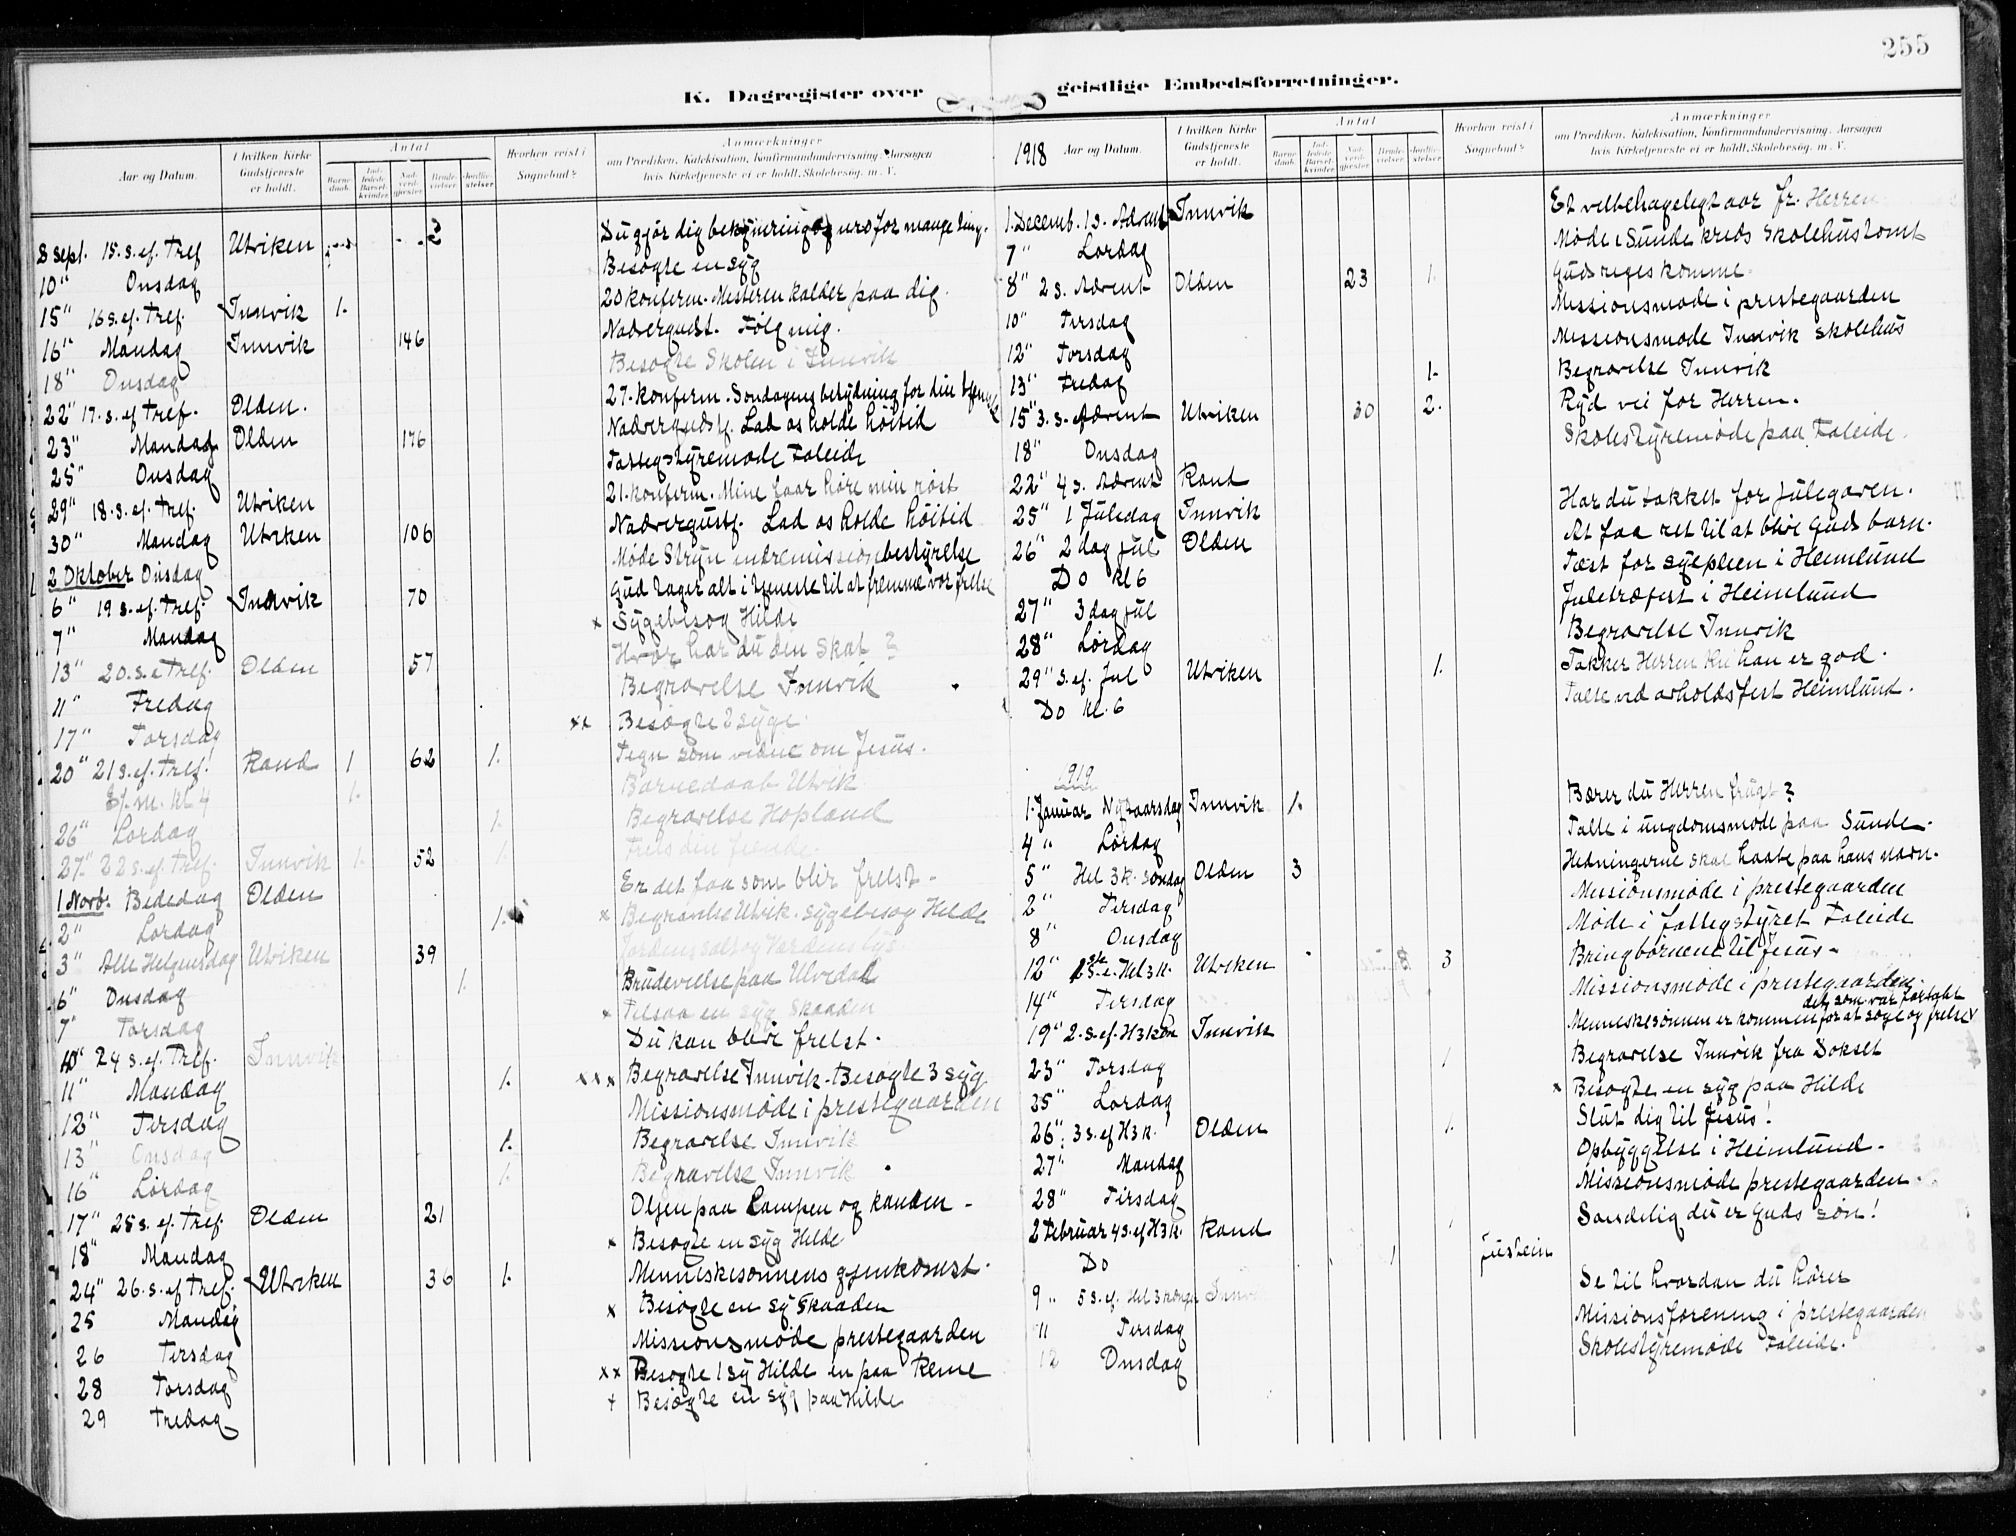 255
K. Dagregister over geistlige Embedsforretninger.
Aar og Datum.
I hvilken Kirke Gudstjeneste er holdt.
Antal
Barnedaab.
Indledede Barselkvinder
Nadverdgjester
Brudevielser
Jordfæstelser
Hvorhen reist i Sognebud?
Anmærkninger
om Prædiken, Katekisation, Konfirmandundervisning, Aarsagen
hvis Kirketjeneste ei er holdt, Skolebesøg. m. V.
8 Sept. 15. s. ef. Tref Utviken Du gjør dig bekymring og uro for mange ting.
10" Onsdag Besøgte en syg
15" 16 s. ef. Tref. Innvik 1. 20 konferm. Mesteren kalder paa dig.
16" Mandag Innvik 146 Nadvergudst. Følg mig.
18" Onsdag Besøgte Skolen i Innvik
22" 17. s. ef Tref. Olden. 27. konferm. Søndagens betydning for din
23" Mandag Olden 176 Nadvergudstj. Lad os holde høitid
25" Onsdag Fattigstyremøde Faleide
29" 18. s. ef. Tref. Utviken 21. konferm. Mine faar høre min røst
30" Mandag Utviken 106 Lad os holde høitid
2 Oktober Onsdag Møde Stryn indremissionbestyrelse
6" 19 s. ef. Tref. Innvik 70 Gud tager alt i tjeneste til at fremme vor frelse
7" Mandag x Sygebesøg Hilde
13" 20. s. e Tref. Olden 57 Hvor har du den skat?
11" Fredag Begravelse Innvik
17" Torsdag xx Besøgte 2 syge.
20" 21 s. ef. Tref. Rand 1 62 1. Tegn som vidne om Jesus.
Ef. m. kl 4 1. Barnedaab Utvik
26" Lørdag 1. Begravelse Hopland
27" 22 s. ef. Tref. Innvik 1. 52 1. Frels din fiende.
1 Novb. Bededag Olden Er det faa som blir frelst -
2" Lørdag 1. x Begravelse Utvik. sygebesøg Hilde
3" Alle Helgensdag Utviken 39 Jordens salt og Verdens lys
6" Onsdag 1. Brudevielse paa Ulvedal
7" Torsdag x Tilsaa en syg Skaaden
10" 24 s. ef. Tref. Innvik Du kan blive frelst.
11" Mandag 1. xxx Begravelse Innvik. Besøgte 3 syg
12" Tirsdag Missionsmøde i prestegaarden
13" Onsdag 1. Begravelse Innvik
16" Lørdag 1. Begravelse Innvik
17" 25 s. ef. Tref. Olden 21 Oljen paa Lampen og kanden -
18" Mandag x Besøgte en syg Hilde
24" 26. s. ef Tref. Utviken 36 1. Menneskesønnens gjenkomst.
25 Mandag x Besøgte en sy Skaaden
26 Tirsdag Missionsmøde prestegaarden
28 Torsdag xx Besøgte 1 sy Hilde en paa Reme
29 Fredag + Besøgte en syg paa Hilde
1918 Aar og Datum.
I hvilken Kirke Gudstjeneste er holdt.
Antal
Barnedaab.
Indledede Barselkvinder
Nadverdgjester
Brudevielser
Jordfæstelser
Hvorhen reist i Sognebud?
Anmærkninger
om Prædiken, Katekisation, Konfirmandundervisning, Aarsagen
hvis Kirketjeneste ei er holdt, Skolebesøg. m. V.
1. Decemb. 1 s. Advent Innvik Et velbehageligt aar fr. Herren
7" Lørdag Møde i Sunde kreds Skolehustomt
8" 2 s. Advent Olden 23 1. Guds riges komme.
10" Tirsdag Missionsmøde i prestegaarden
12" Torsdag Missionsmøde Innvik Skolehus
13" Fredag 1. Begravelse Innvik
15" 3. s. Advent Utviken 30 2. Ryd vei for Herren.
18" Onsdag Skolestyremøde paa Faleide.
22" 4 s. Advent Rand
25" 1 Juledag Innvik Har du takket for julegaven.
26" 2 dag jul Olden At faa ret til at blive Guds barn.
Do kl 6 Fest for sygepleien i Heimlund
27" 3 dag jul Juletræfest i Heimlund
28" Lørdag Begravelse Innvik
29" S. ef. Jul Utviken 1. Takker Herren thi han er god.
Do kl. 6 Talte ved avholdsfest Heimlund.
1919
1. Januar Nytaarsdag Innvik 1. Bærer du Herren frugt?
4 " Lørdag Talte i ungdomsmøde paa Sunde.
5" Hel 3 k. søndag Olden 3 Hedningerne skal haabe paa hans navn.
2" Tirsdag Missionsmøde i prestegaarden
8" Onsdag Møde i fattigstyret Faleide
12" 1ste s. e. Hel 3 k. Utviken 3 Bring børnene til Jesus -
14" Tirsdag Missionsmøde i prestegaarden.
19" 2. s. ef. H 3 kon Innvik Menneskesønnen er kommen for at søge og frelse det som var fortabt
23" Torsdag 1 Begravelse Innvik fra Dokset
25" Lørdag x Besøgte en syg paa Hilde
26" 3 s. ef H 3 k. Olden 1. Slut dig til Jesus!
27" Mandag Opbyggelse i Heimlund.
28" Tirsdag Missionsmøde prestegaarden.
2 Februar 4 s. ef H 3 k. Rand Sandelig du er Guds søn!
Do 1
9 " 5 s. ef. Hel 3 konger Innvik Se til hvordan du hører
11 Tirsdag Missionsforening i prestegaarden
12 Onsdag Skolestyremøde Faleide.